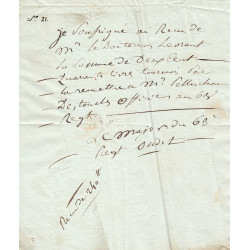 No. 21.
Je Soussigné ai Recu de
Mr. le Docteur Levrant
la Somme de Deux Cent
quarante livre tournois pour
la remettre a Mr. Pelluchau
Destouches Officiers au 63e
Regt.
le Major du 63e
Regt Oudet
Reçu de 240 tt